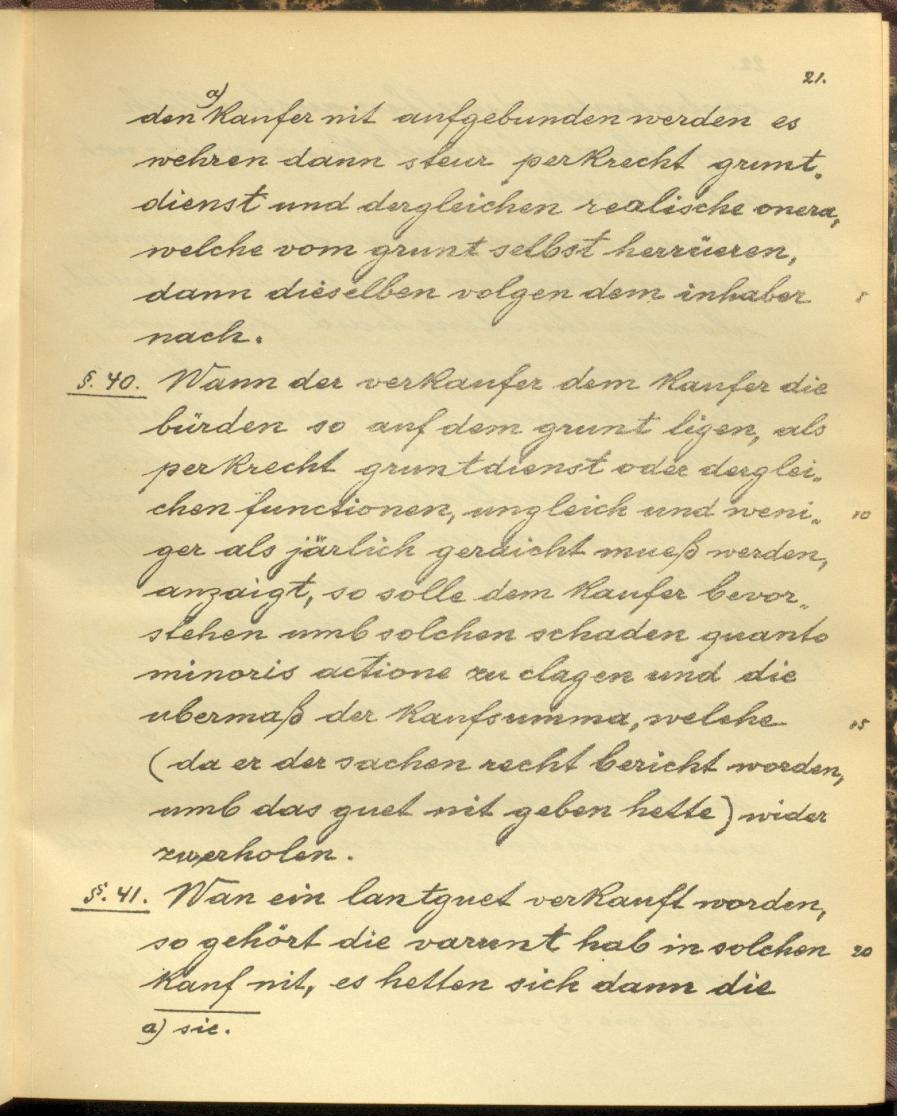 21.
den a) Kaufer nit aufgebunden werden es
wehren dann steur perkrecht grunt„
dienst und dergleichen realische onera,
welche vom grunt selbst herrüeren,
dann dieselben volgen dem inhaber 5
nach.
§. 40. Wann der verkaufer dem Kaufer die
bürden so auf dem grunt ligen, als
perkrecht gruntdienst oder derglei„
chen functionen, ungleich und weni„ 10
ger als järlich geraicht mueß werden,
anzaigt, so solle dem Kaufer bevor„
stehen umb solchen schaden quanto
minoris actione zu clagen und die
ubermaß der Kaufsumma, welche 15
(da er der sachen recht bericht worden,
umb das guet nit geben hette) wider
zuerholen.
§. 41. Wan ein lantguet verkauft worden,
so gehört die varunt hab in solchen 20
Kauf nit, es hetten sich dann die
a) sic.